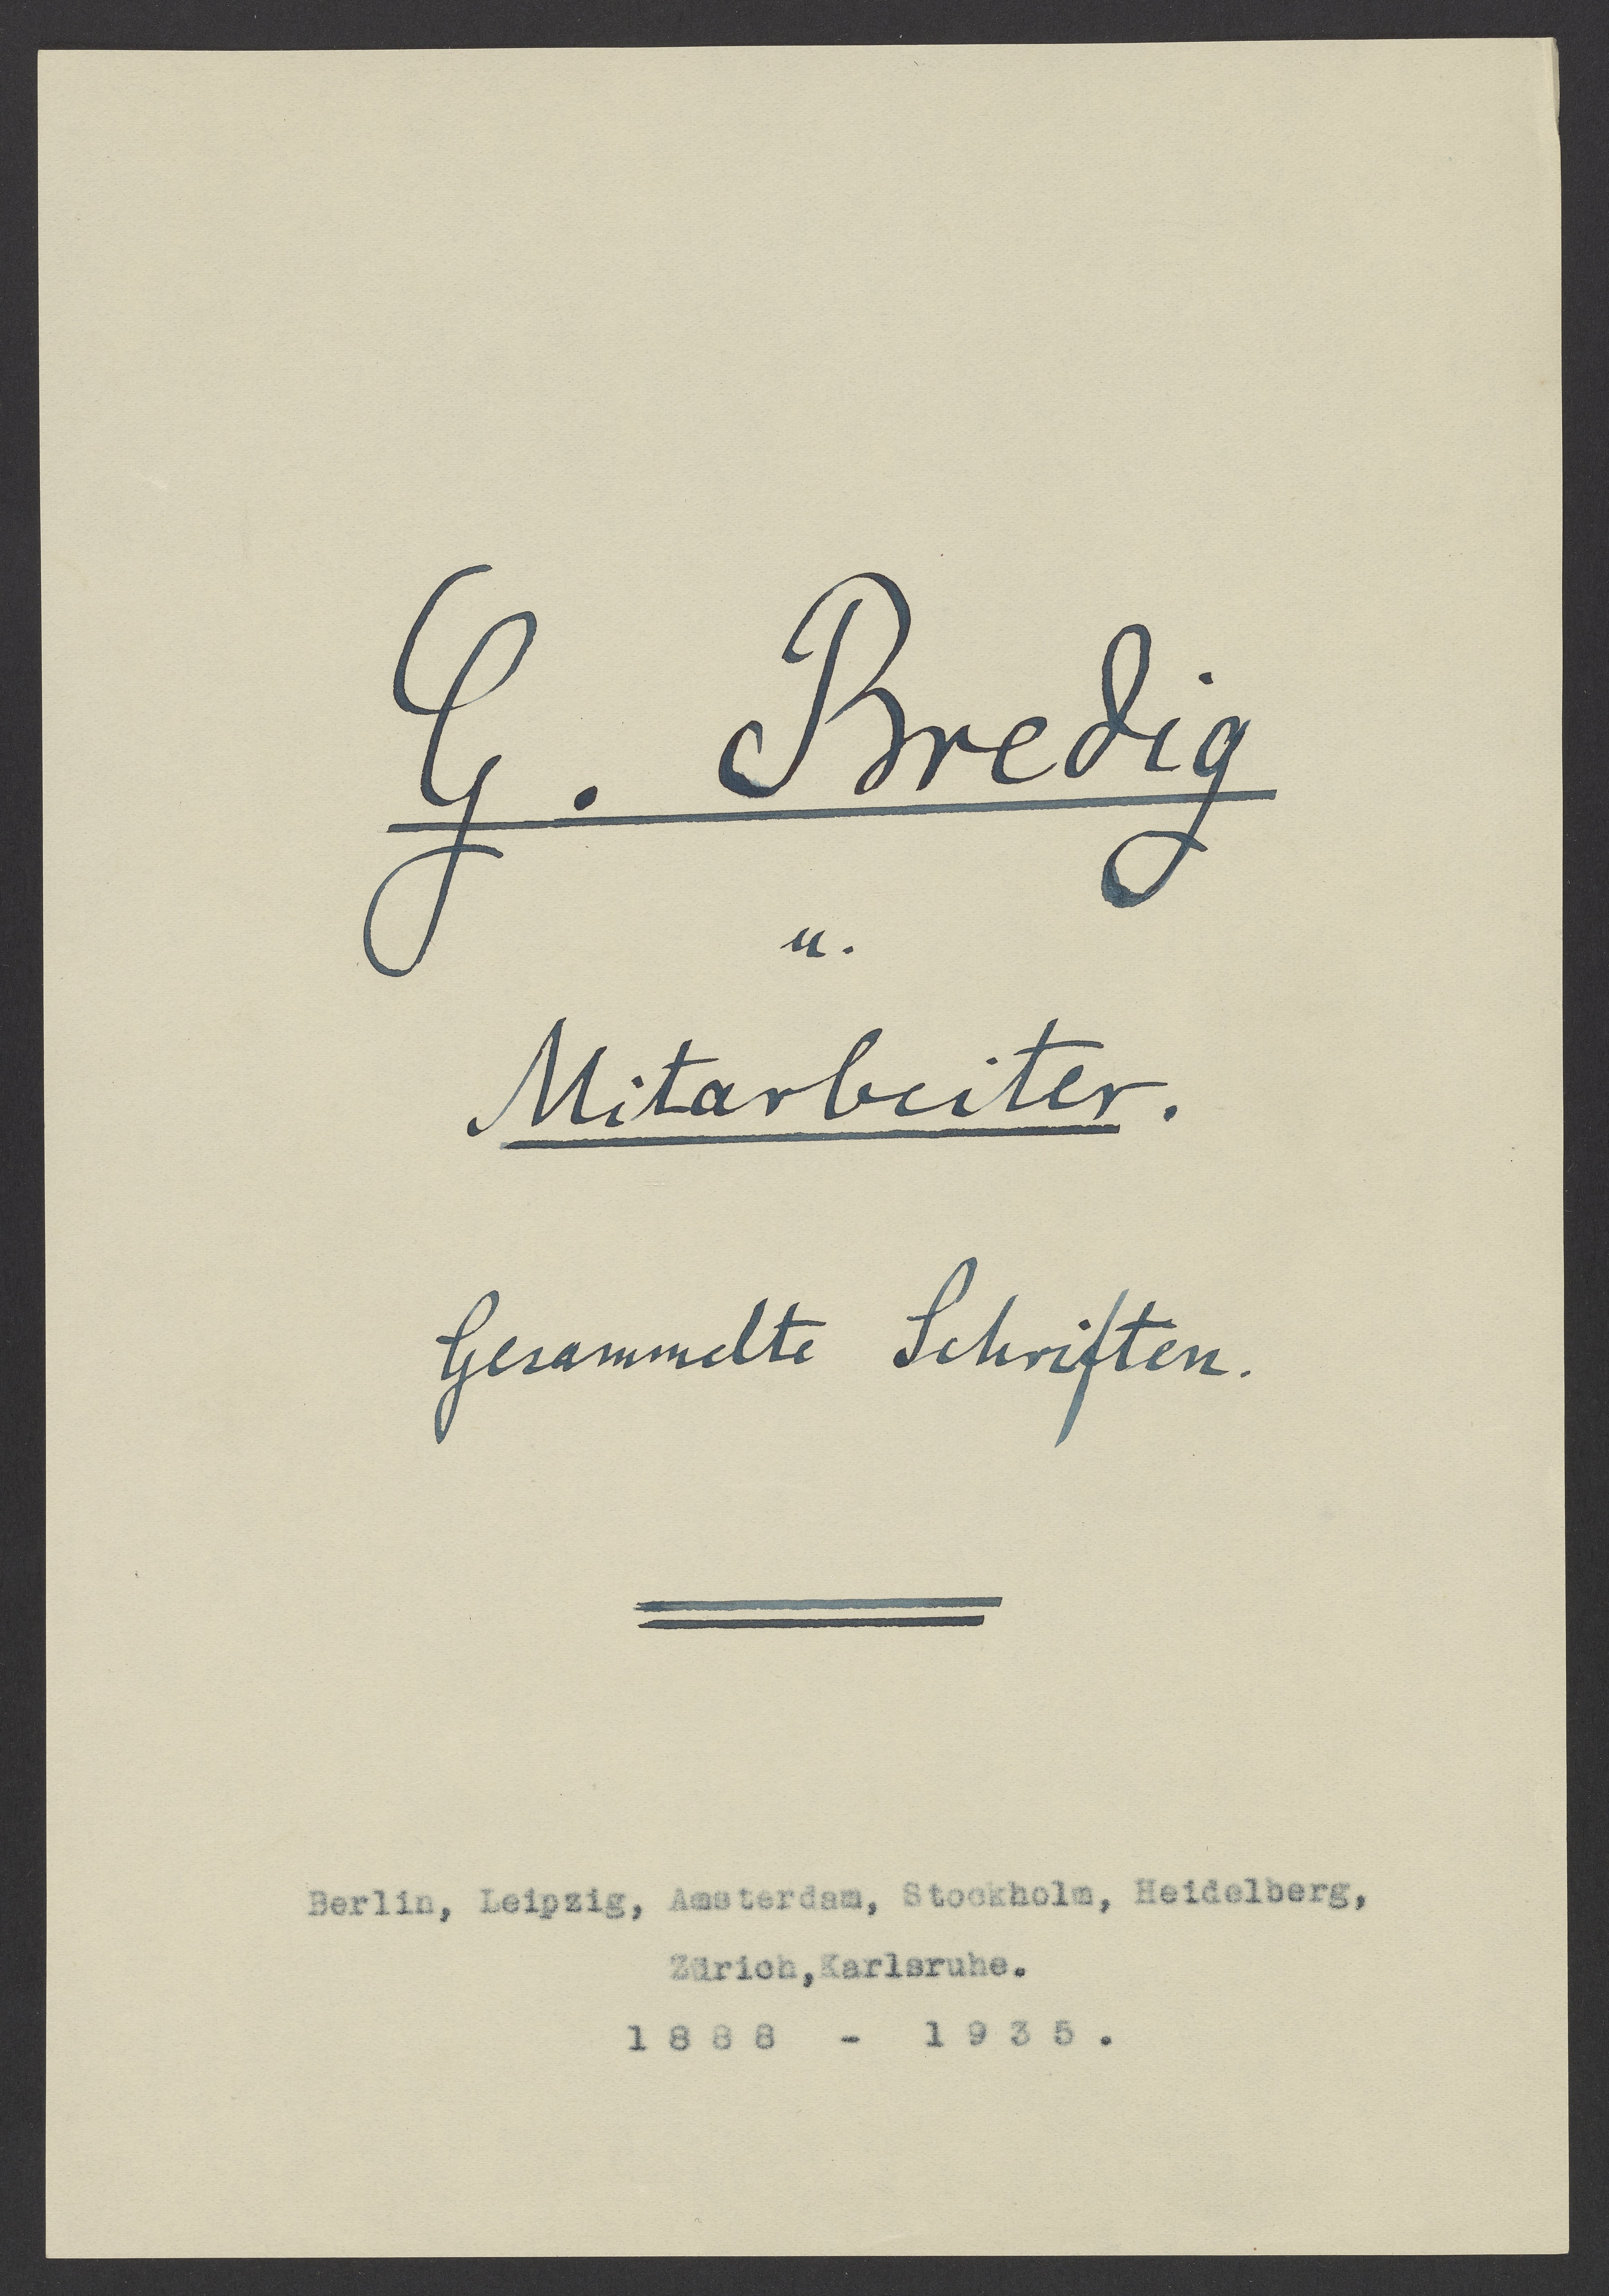 G. Bredig
u.
Mitarbeiter.
Gesammelte Schriften.
Berlin, Leipzig, Amsterdam, Stockholm, Heidelberg,
Zürich,Karlsruhe.
1888 - 1935.